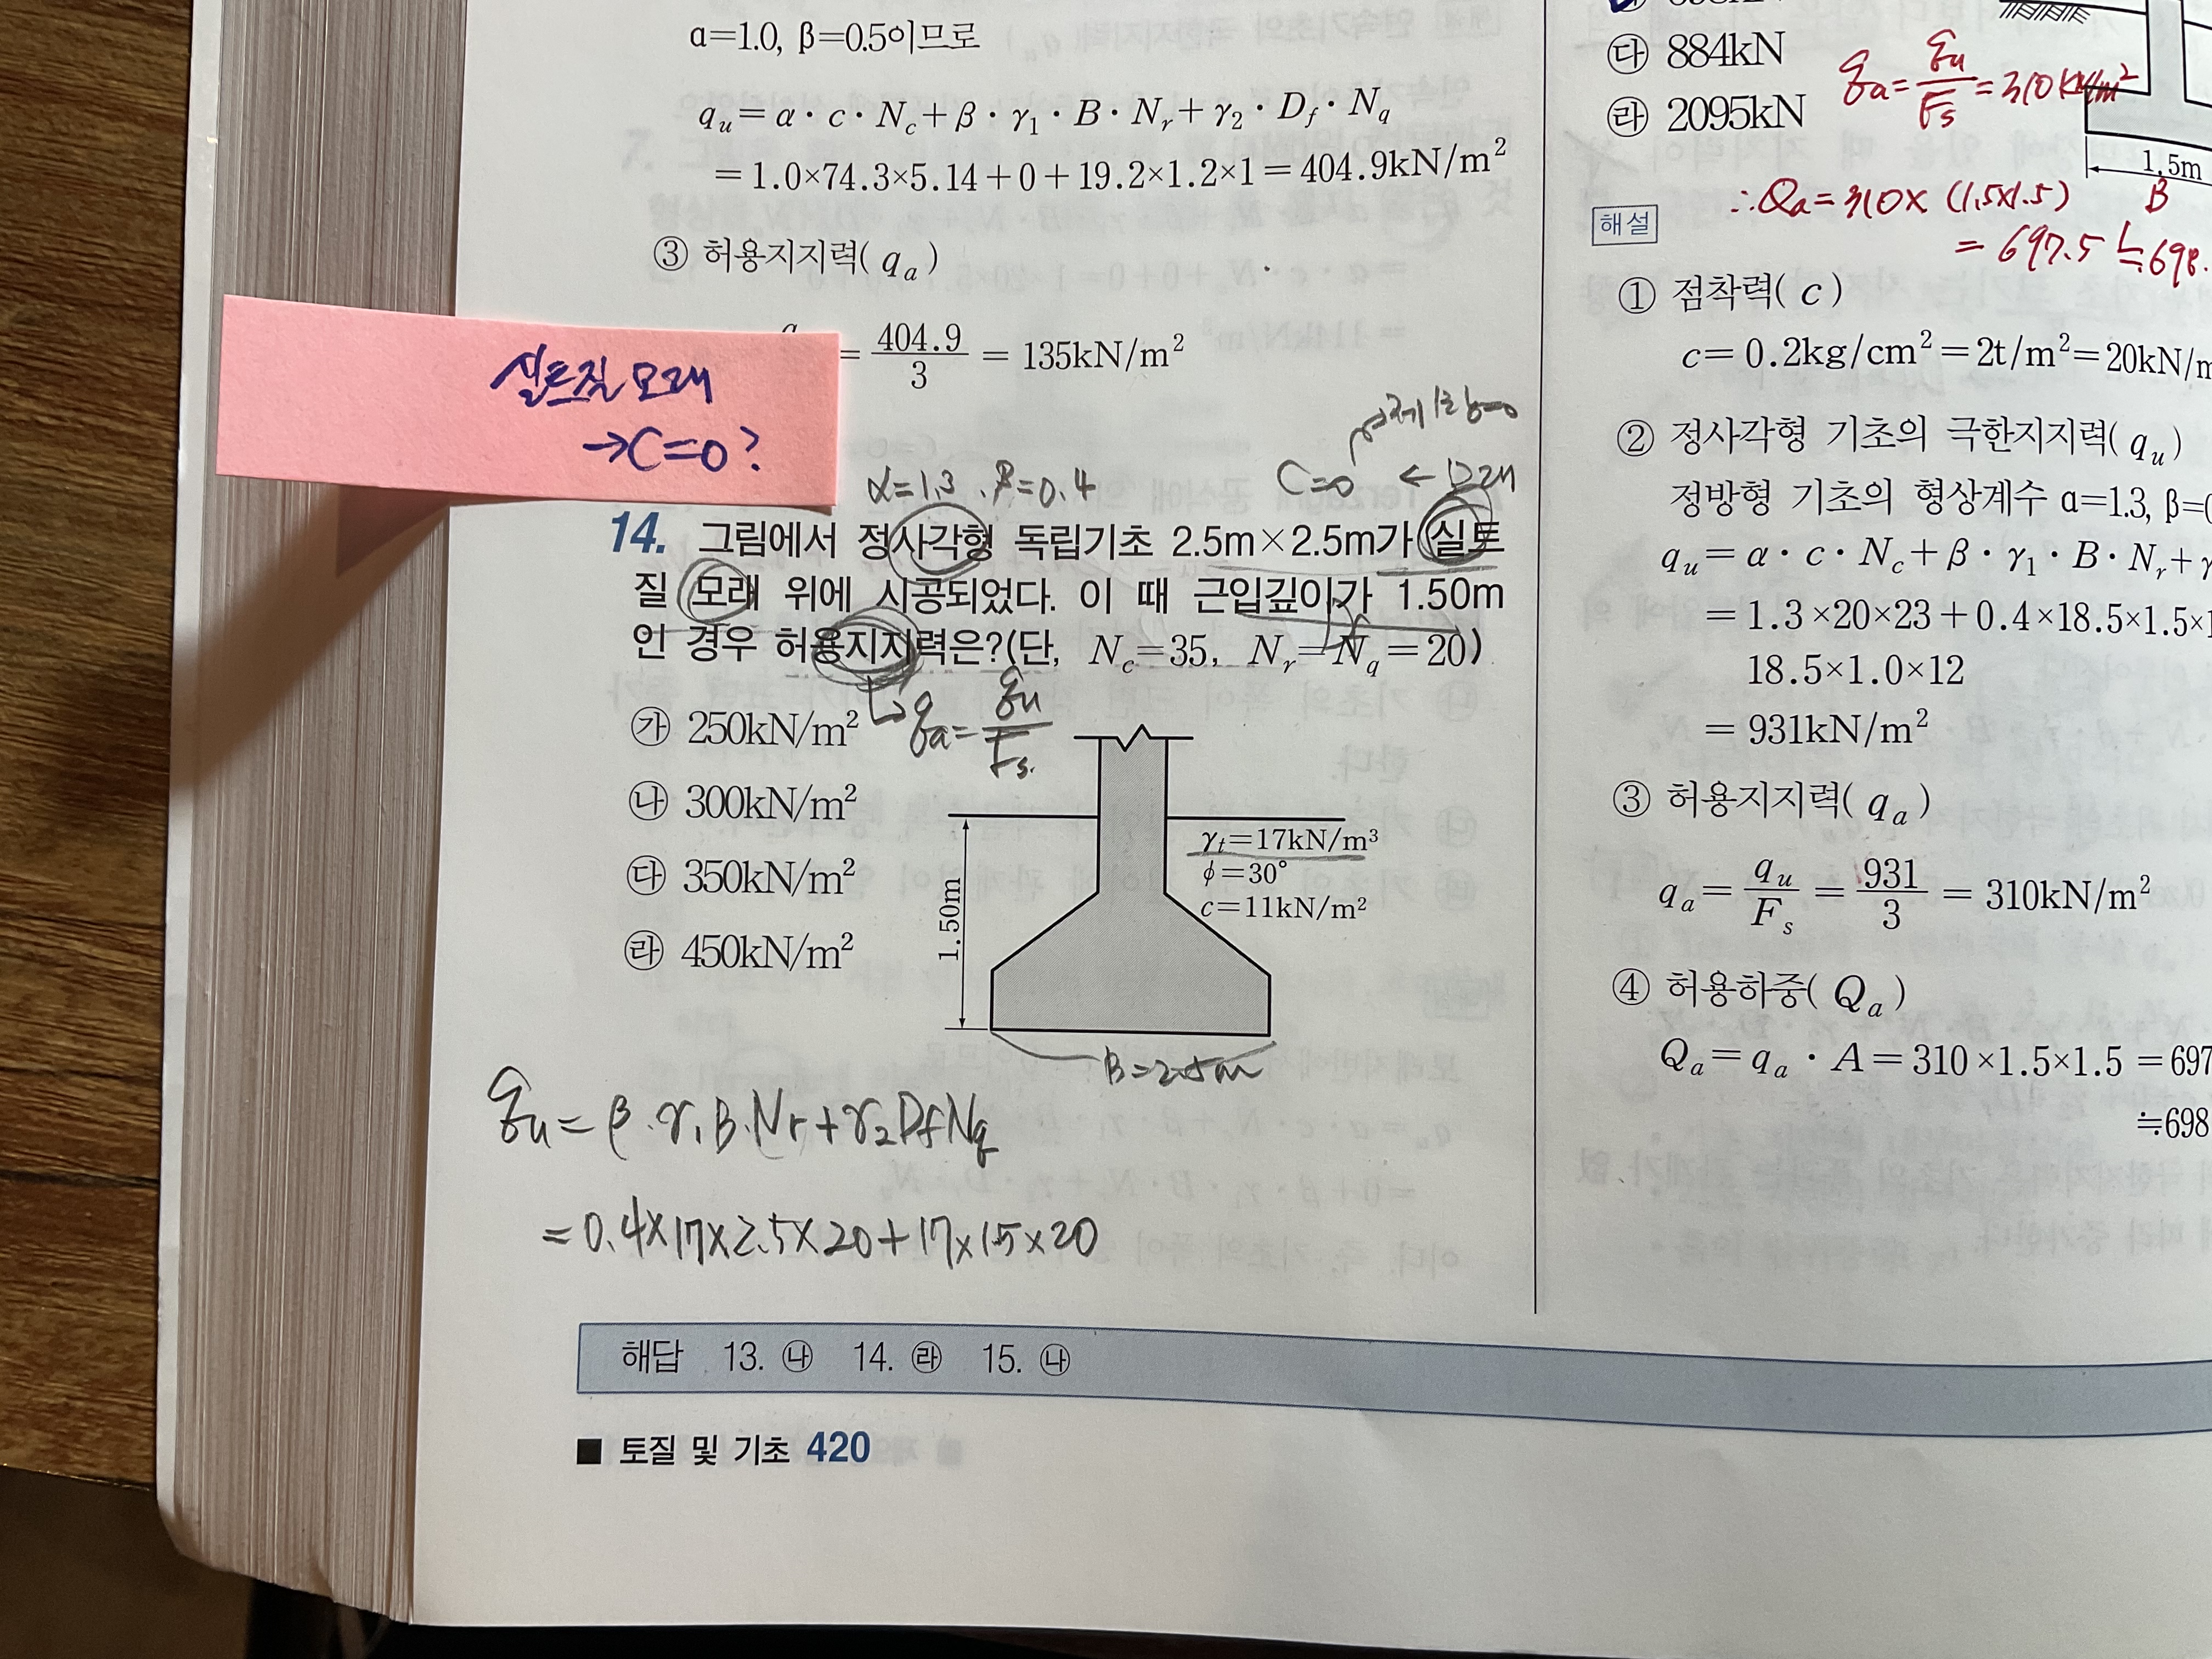 α=1.0, β=0.5이므로
q_u = α · c · N_c + β · γ_1 · B · N_r + γ_2 · D_f · N_q
= 1.0×74.3×5.14+0+19.2×1.2×1 = 404.9kN/m²
③ 허용지지력( q_a )
= 404.9/3 = 135kN/m²
실트질 모래
→ C=0?
α=1.3 . β=0.4
C=0 ← 모래
14. 그림에서 정사각형 독립기초 2.5m×2.5m가 실트
질 모래 위에 시공되었다. 이 때 근입깊이가 1.50m
인 경우 허용지지력은?(단, N_c=35, N_r=N_q=20)
㉮ 250kN/m²
q_a = q_u/F_s.
㉯ 300kN/m²
㉰ 350kN/m²
㉱ 450kN/m²
γ_t=17kN/m³
ϕ=30°
c=11kN/m²
1.50m
B=2.5m
q_u = β·γ_1 B·N_r + γ_2 D_f N_q
= 0.4×17×2.5×20+17×1.5×20
해답 13. ㉯ 14. ㉱ 15. ㉯
■ 토질 및 기초 420
㉰ 884kN
㉱ 2095kN
q_a = q_u/F_s = 310 kN/m²
1.5m
B
∴Q_a = 310×(1.5×1.5)
= 697.5 ≒ 698.
해설
① 점착력( c )
c = 0.2kg/cm² = 2t/m² = 20kN/m
② 정사각형 기초의 극한지지력( q_u )
정방형 기초의 형상계수 α=1.3, β=0
q_u = α · c · N_c + β · γ_1 · B · N_r + γ
= 1.3×20×23+0.4×18.5×1.5×1
18.5×1.0×12
= 931kN/m²
③ 허용지지력( q_a )
q_a = q_u/F_s = 931/3 = 310kN/m²
④ 허용하중( Q_a )
Q_a = q_a · A = 310×1.5×1.5 = 697
≒698